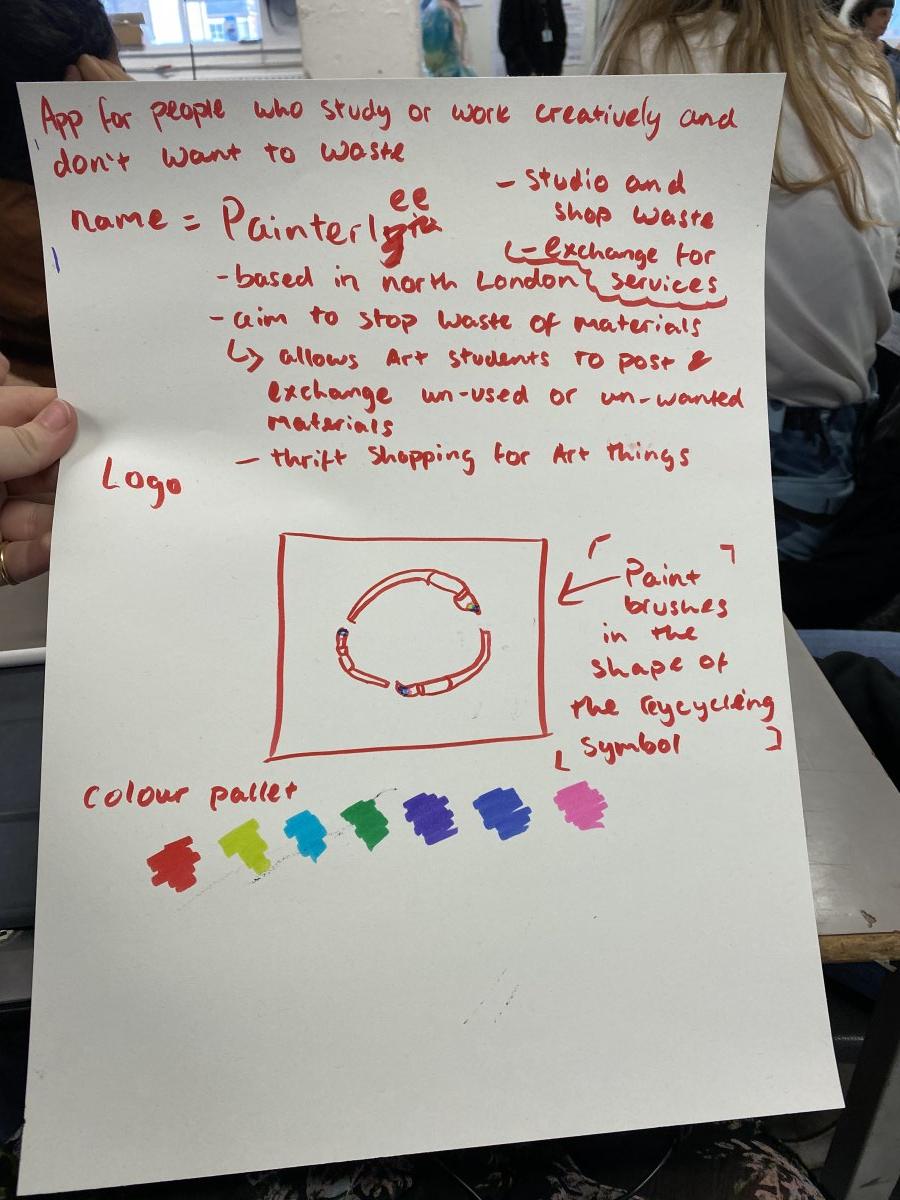 App for people who study or work creatively and
don't want to waste
name = Painterlee
- based in north London
- aim to stop waste of materials
↳ allows Art students to post &
exchange un-used or un-wanted
materials
- thrift shopping for Art things
- studio and
shop waste
- exchange for
services
Logo
Paint
brushes
in the
shape of
the reycycling
symbol
colour pallet